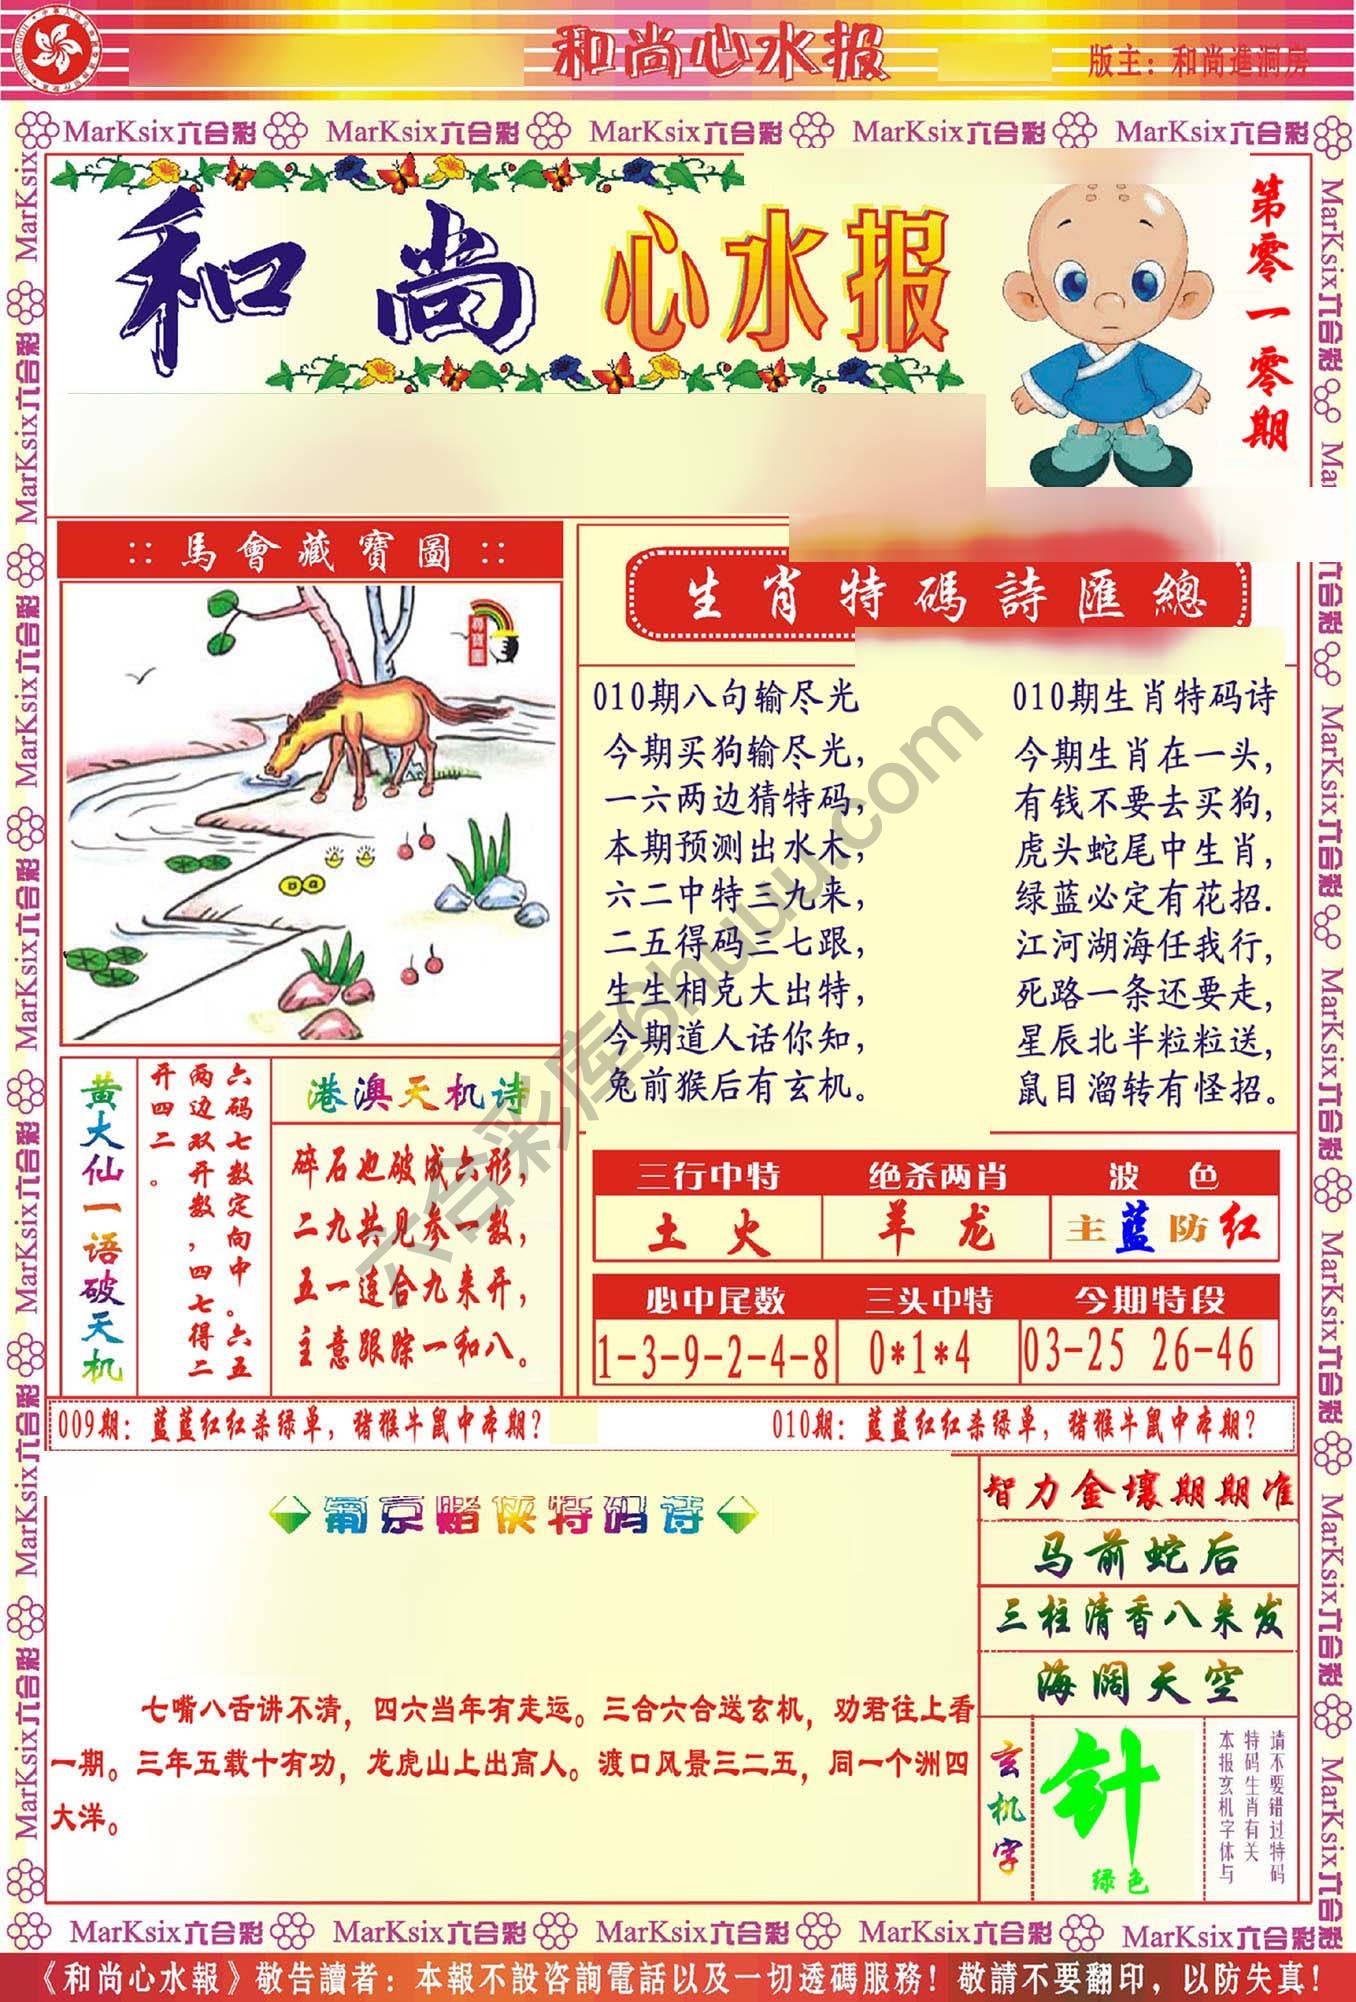 和尚心水报
版主：和尚進洞房
MarKsix六合彩 MarKsix六合彩 MarKsix六合彩 MarKsix六合彩 MarKsix六合彩
和尚 心水报
第零一零期
::馬會藏寶圖::
尋寶圖
生肖特碼詩匯總
010期八句输尽光
今期买狗输尽光，
一六两边猜特码，
本期预测出水木，
六二中特三九来，
二五得码三七跟，
生生相克大出特，
今期道人话你知，
兔前猴后有玄机。
010期生肖特码诗
今期生肖在一头，
有钱不要去买狗，
虎头蛇尾中生肖，
绿蓝必定有花招.
江河湖海任我行，
死路一条还要走，
星辰北半粒粒送，
鼠目溜转有怪招。
六合彩库6huuu.com
黄大仙一语破天机
六码七数定向中。六五
两边双开数，四七得二
开四二。
港澳天机诗
碎石也破成六形，
二九共见参一数，
五一连合九来开，
主意跟踪一和八。
三行中特 绝杀两肖 波色
土火 羊龙 主蓝防红
必中尾数 三头中特 今期特段
1-3-9-2-4-8 0*1*4 03-25 26-46
009期：蓝蓝红红杀绿单，猪猴牛鼠中本期？
010期：蓝蓝红红杀绿单，猪猴牛鼠中本期？
葡京赌侠特码诗
七嘴八舌讲不清，四六当年有走运。三合六合送玄机，劝君往上看
一期。三年五载十有功，龙虎山上出高人。渡口风景三二五，同一个洲四
大洋。
智力金壤期期准
马前蛇后
三柱清香八来发
海阔天空
玄机字
针
绿色
请不要错过特码
特码生肖有关
本报玄机字体与
MarKsix六合彩 MarKsix六合彩 MarKsix六合彩 MarKsix六合彩 MarKsix六合彩
《和尚心水報》敬告讀者：本報不設咨詢電話以及一切透碼服務！敬請不要翻印，以防失真！